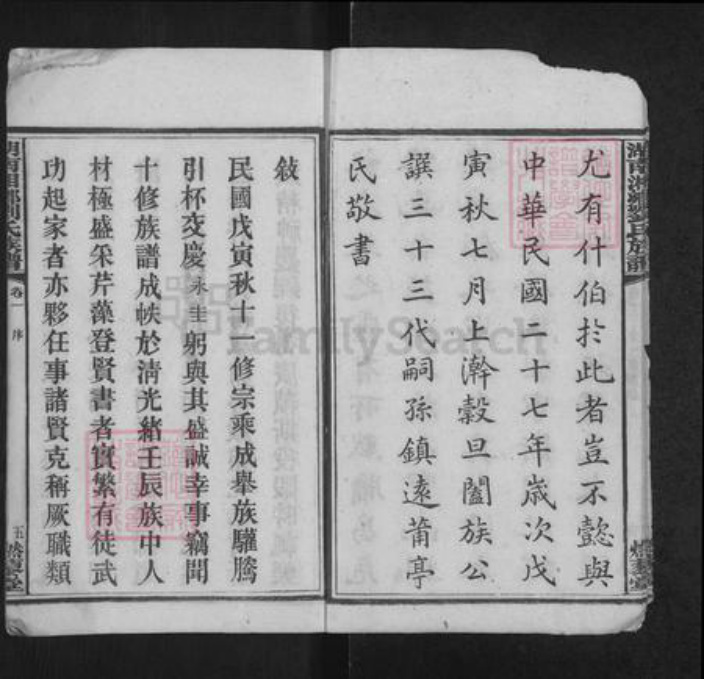 尤有什伯扵此者豈不懿與
中華民國二十七年歲次戊
寅秋七月上澣穀旦闔族公
譔三十三代嗣孫鎮遠莆亭
氏敬書
敍
民國戊寅秋十一修宗乘成舉族驩騰
引杯交慶永圭躬與其盛誠幸事竊聞
十修族譜成帙於淸光緖壬辰族中人
材極盛采芹藻登賢書者實繁有徒武
功起家者亦夥任事諸賢克稱厥職類
湖南湘鄉劉氏族譜
卷一
序
五
FamilySearch